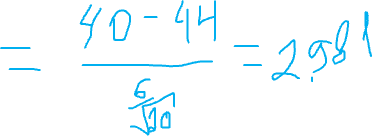 = \frac{40 - 44}{\frac{6}{\sqrt{20}}} = 2.981